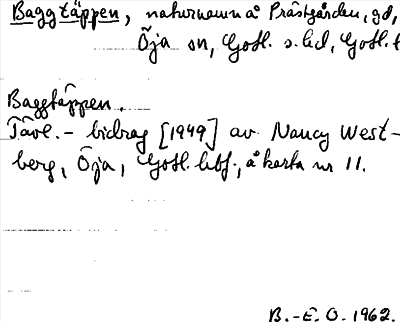 Baggtäppen, naturnamn å Prästgården, gd,
Öja sn, Gotl. s. hd, Gotl. l
Baggtäppen.
Tävl.- bidrag [1949] av Nancy West-
berg, Öja, Gotl. hbf., å karta nr 11.
B.-E. O. 1962.